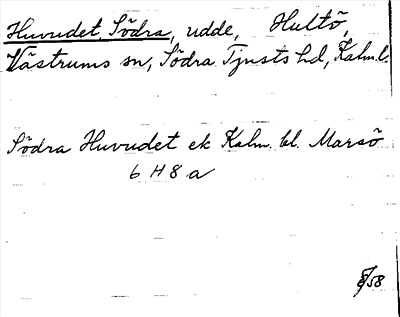 Huvudet, Södra, udde, Hultö,
Västrums sn, Södra Tjusts hd, Kalm.l.
Södra Huvudet ek Kalm. bl. Marsö
6 H 8 a
58